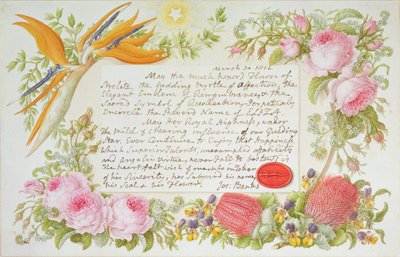 March 30 1814
May the much honor'd Flower of
Strelitz, the Wedding Myrtle of Affection, the
Elegant Emblem of Remembrance, & the
Sacred Symbol of Recollection, Perpetualy
Encircle the Adord Name of ELIZA
May her Royal Highness under
the mild & Chearing influence of our Guiding
Star, Ever Continue to Enjoy that Happiness
which Superior Talents, unexampled affability
and Angelic Virtue, never Fail to bestow, is
the heart felt wish of one who in Token
of his Sincerity, has Subscribd his name
his Seal & his Flower.
Jos: Banks